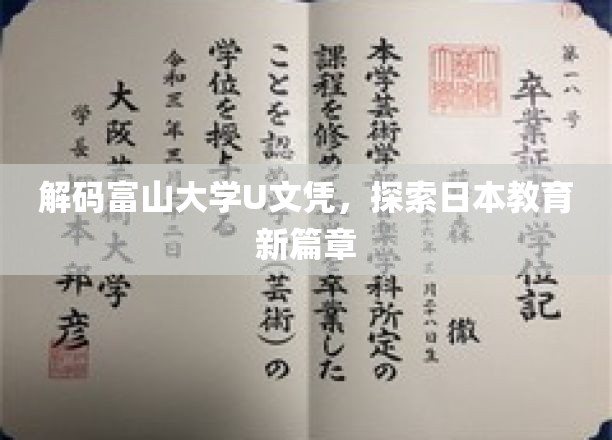 解码富山大学U文凭，探索日本教育
新篇章
第一八号
卒業証 学位記
森 徹
月二十八日生
本学芸術学部 楽学科所定の
課程を修め を卒業した
ことを認め (芸術)の
学位を授与する
令和三年三月 日
大阪芸術大学
学長 本邦彦